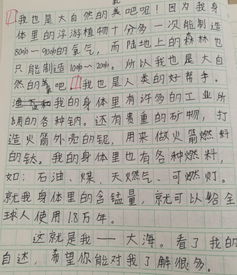 我也是大自然的美吧喔！因为我身
体里的浮游植物十分多一次能制造
80%～90%的氧气，而陆地上的森林也
只能制造10%～20%。所以我也是大自
然的吧我也是人类的好帮手。
我的身体里有许多的工业所
用的各种钠。还有贵重的矿物，打
造火箭外壳的铌，用来做火箭燃料
的钛。我的身体里也有各种燃料，
如：石油、煤、天燃气、可燃灯。
就我身体里的含锰量，就可以给全
球人使用18万年。
这就是我——大海。看了我的
自述，希望你能对我了解很多。